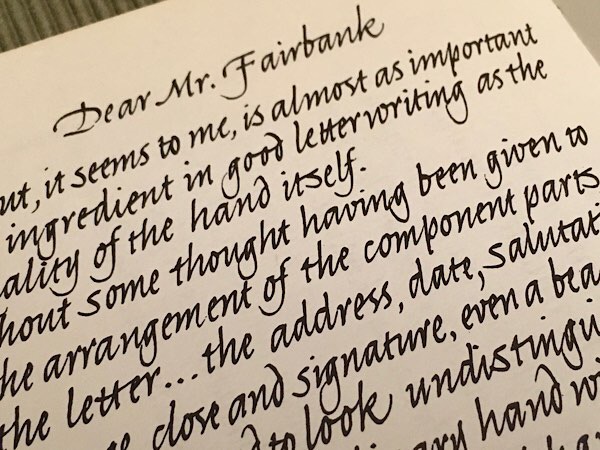 Dear Mr. Fairbank
ut, it seems to me, is almost as important
ingredient in good letterwriting as the
ality of the hand itself.
hout some thought having been given to
he arrangement of the component parts
the letter... the address, date, salutat
close and signature, even a bea
d to look undistingui
ary hand w